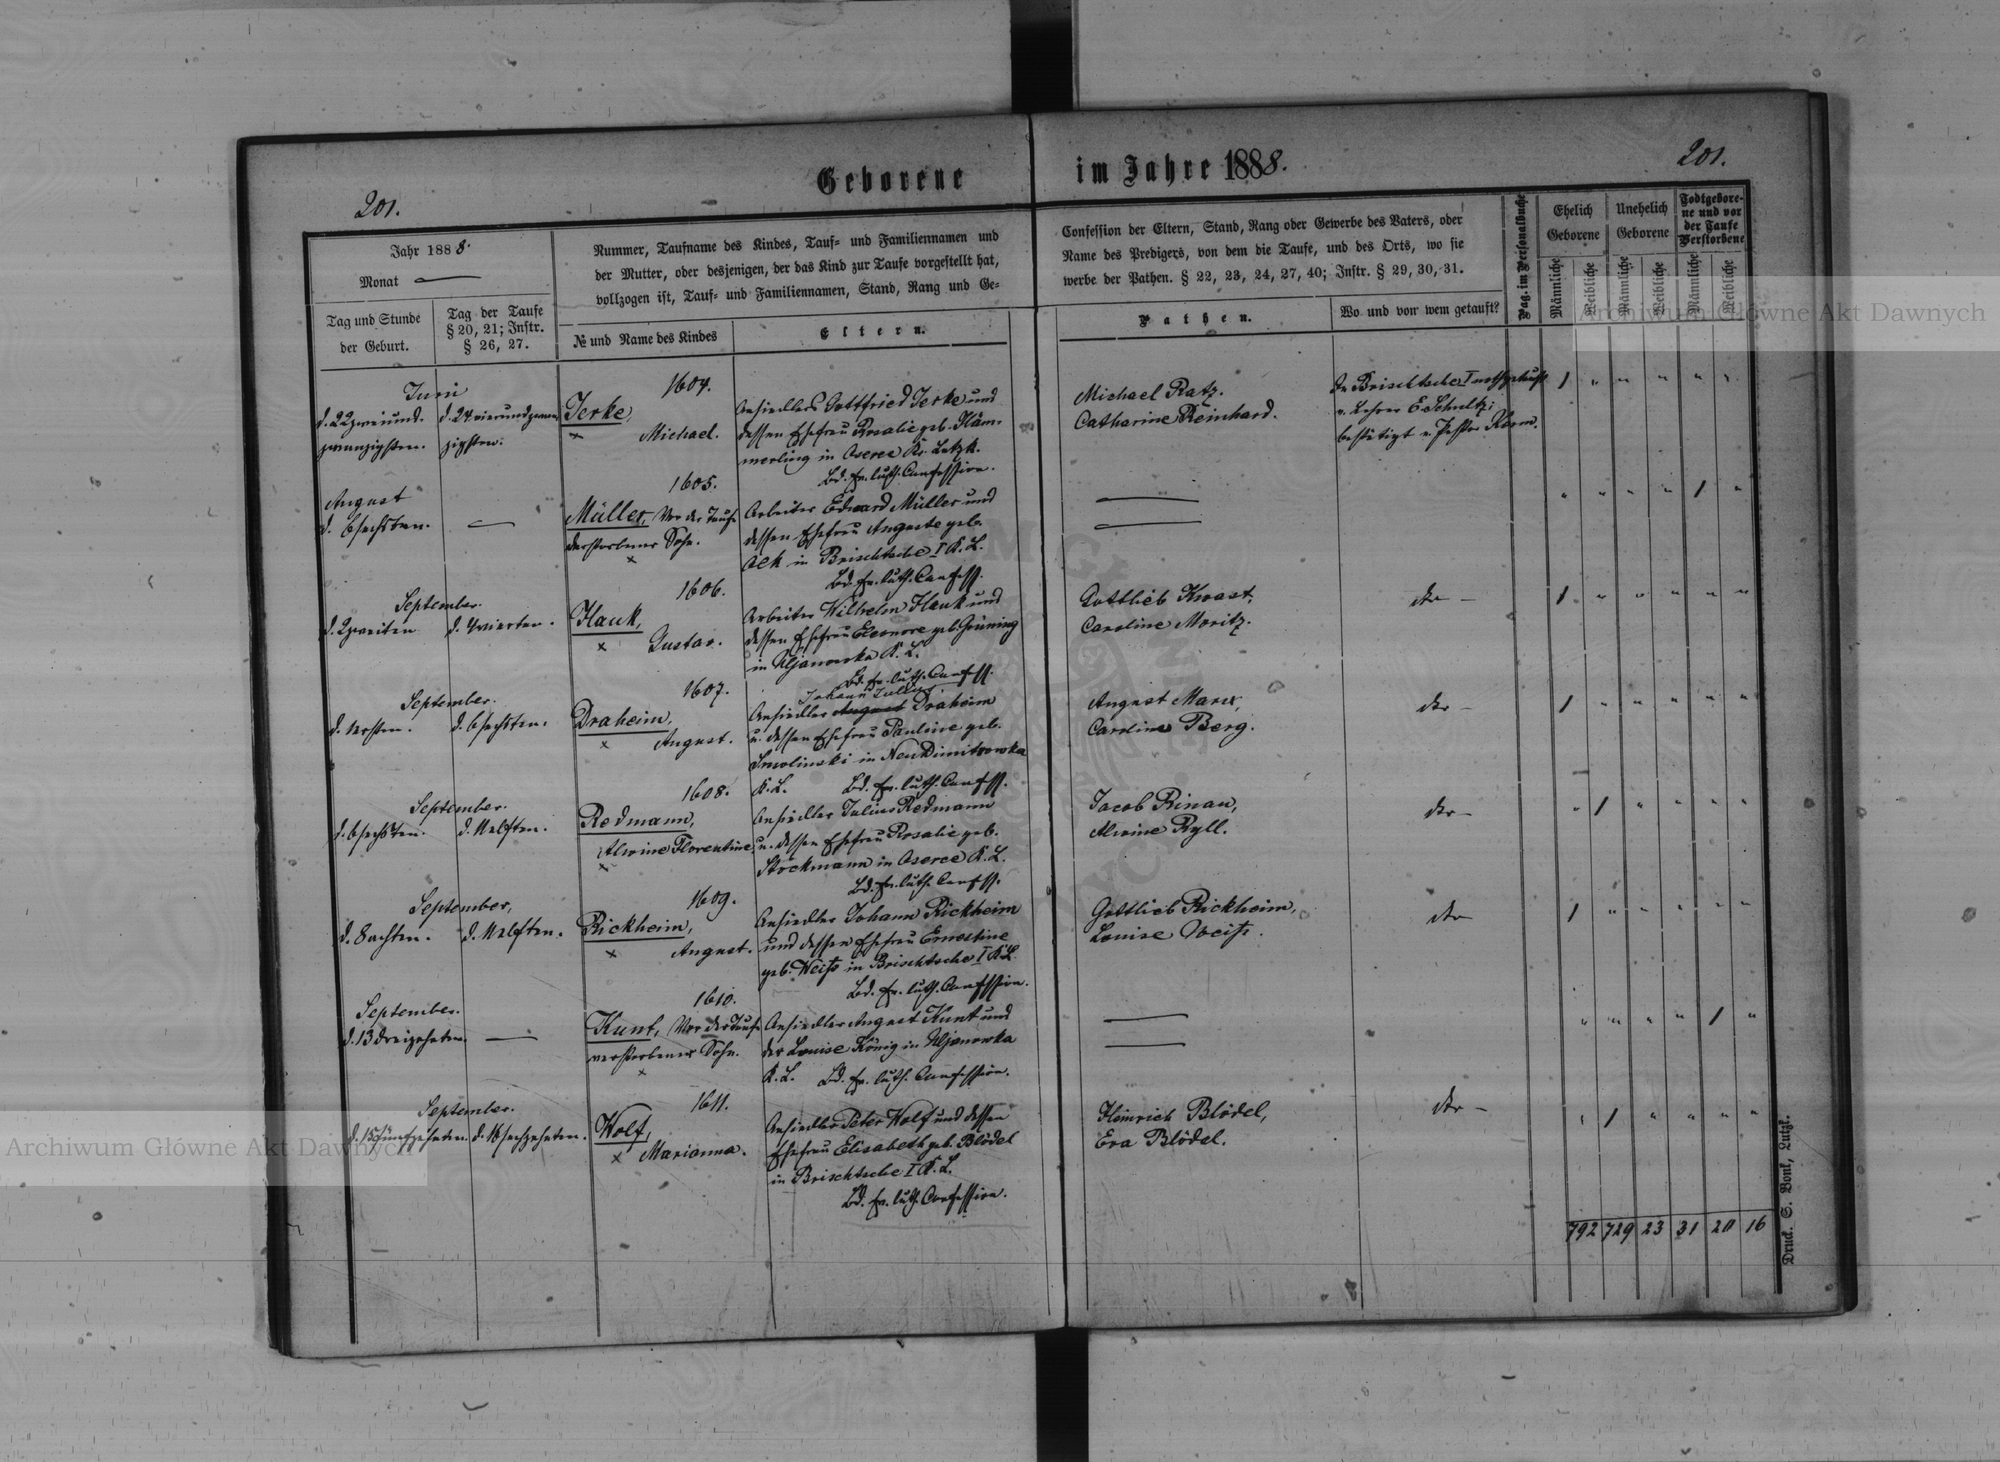 Geborene im Jahre 1888.
201.
201.
Jahr 1888.
Monat —
Tag und Stunde
der Geburt.
Tag der Taufe
§ 20, 21; Instr.
§ 26, 27.
Nummer, Taufname des Kindes, Tauf- und Familiennamen und
der Mutter, oder desjenigen, der das Kind zur Taufe vorgestellt hat,
vollzogen ist, Tauf- und Familiennamen, Stand, Rang und Ge-
№ und Name des Kindes
Eltern.
Confession der Eltern, Stand, Rang oder Gewerbe des Vaters, oder
Name des Predigers, von dem die Taufe, und des Orts, wo sie
werbe der Pathen. § 22, 23, 24, 27, 40; Instr. § 29, 30, 31.
Pathen.
Wo und von wem getauft?
Pag. im Personalbuche
Ehelich
Geborene
Unehelich
Geborene
Todtgebore-
ne und vor
der Taufe
Verstorbene
Männliche
Weibliche
Männliche
Weibliche
Männliche
Weibliche
Juni
d. 22 zweiund-
zwanzigsten.
d. 24 vierundzwan-
zigsten.
1604.
Jerke,
Michael.
Ansiedlers Gottfried Jerke und
dessen Ehefrau Rosalie geb. Häm-
merling in Oserce Kr. Lutzk.
Bd. Ev. luth. Confession.
Michael Ratz.
Catharine Reinhard.
In Brischtsche I nothgetauft
v. Lehrer E. Schultz;
bestätigt v. Pastor Kerm.
1 " " " " "
August
d. 6 sechsten.
—
1605.
Müller, Vor der Taufe
verstorbener Sohn.
Arbeiter Edward Müller und
dessen Ehefrau Auguste geb.
in Brischtsche I K. L.
Bd. Ev. luth. Confess.
" " " " 1 "
September.
d. 2 zweiten
d. 4 vierten.
1606.
Hauk,
Gustav.
Arbeiter Wilhelm Hauk und
dessen Ehefrau Eleonore geb. Grüning
in Uljanowka K. L.
Bd. Ev. luth. Confess.
Gottlieb Kwast,
Caroline Moritz.
1 " " " " "
September.
d. 1 ersten.
d. 6 sechsten.
1607.
Draheim,
August.
Johann Julius
Ansiedler August Draheim
u. dessen Ehefrau Pauline geb.
Smolinski in Neu Dimitrowka
K. L. Bd. Ev. luth. Confess.
August Marx,
Caroline Berg.
1 " " " " "
September.
d. 6 sechsten.
d. 11 elften.
1608.
Redmann,
Alwine Florentine.
Ansiedler Julius Redmann
u. dessen Ehefrau Rosalie geb.
Stockmann in Oserce K. L.
Bd. Ev. luth. Confess.
Jacob Rinau,
Alwine Ryll.
" 1 " " " "
September,
d. 8 achten.
d. 11 elften.
1609.
Rickheim,
August.
Ansiedler Johann Rickheim
und dessen Ehefrau Ernestine
geb. Weiß in Brischtsche I K. L.
Bd. Ev. luth. Confession.
Gottlieb Rickheim,
Louise Weiß.
1 " " " " "
September.
d. 13 dreizehnten.
—
1610.
Kunt, Vor der Taufe
verstorbener Sohn.
Ansiedler August Kunt und
der Louise König in Uljanowka
K. L. Bd. Ev. luth. Confession.
" " " " 1 "
September.
d. 15 fünfzehnten.
d. 16 sechzehnten.
1611.
Wolf,
Marianna.
Ansiedler Peter Wolf und dessen
Ehefrau Elisabeth geb. Blödel
in Brischtsche I K. L.
Bd. Ev. luth. Confession.
Heinrich Blödel,
Eva Blödel.
" 1 " " " "
792 729 23 31 20 16
Druck. S. Bonk, Lutzk.
Archiwum Główne Akt Dawnych
Archiwum Główne Akt Dawnych